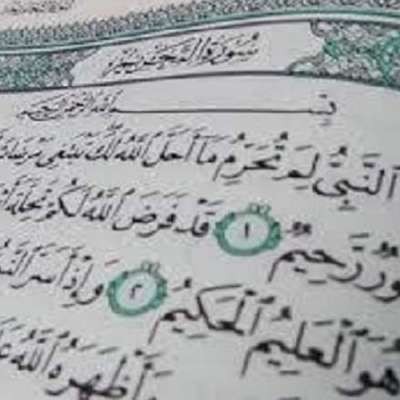 سُورَةُ التَّحْرِيمِ
بِسْمِ اللَّهِ الرَّحْمَٰنِ الرَّحِيمِ
ٱلنَّبِيُّ لِمَ تُحَرِّمُ مَآ أَحَلَّ ٱللَّهُ لَكَ تَبْتَغِى مَرْضَاتَ
رَّحِيمٌ ١ قَدْ فَرَضَ ٱللَّهُ لَكُمْ تَحِلَّةَ
هُوَ ٱلْعَلِيمُ ٱلْحَكِيمُ ٢ وَإِذْ أَسَرَّ
وَأَظْهَرَهُ ٱللَّهُ